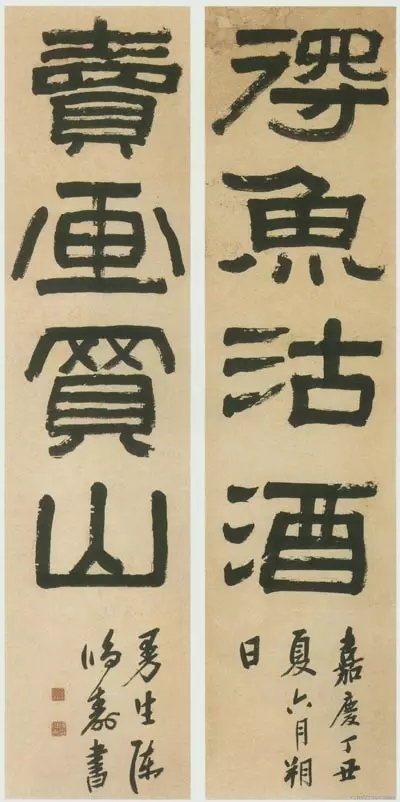 得魚沽酒
嘉慶丁丑
夏六月朔
日
賣画買山
曼生陳
鴻壽書